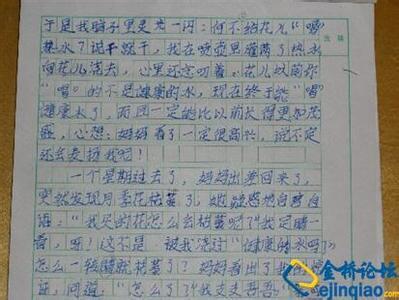 于是我脑子里灵光一闪：何不给花儿“喝”
热水？说干就干，我在喷壶里灌满了热水
向花儿浇去，心里还念叨着：花儿以前你
“喝”的不是健康的水，现在终于能“喝”
健康水了，而且一定能比以前长得更加茂
盛，心想：妈妈看了一定很高兴，说不定
还会表扬我呢！
一个星期过去了，妈妈出差回来了，
突然发现月季花枯萎了，她疑惑地自言自
语：“我买的花怎么会枯萎呢？”我定睛一
看，呀！这不是被我浇过“健康的水吗？
怎么一转眼就枯萎了？妈妈看出了我的
证，问道：“怎么了？”我支支吾吾
金桥论坛
ejinqiao.com